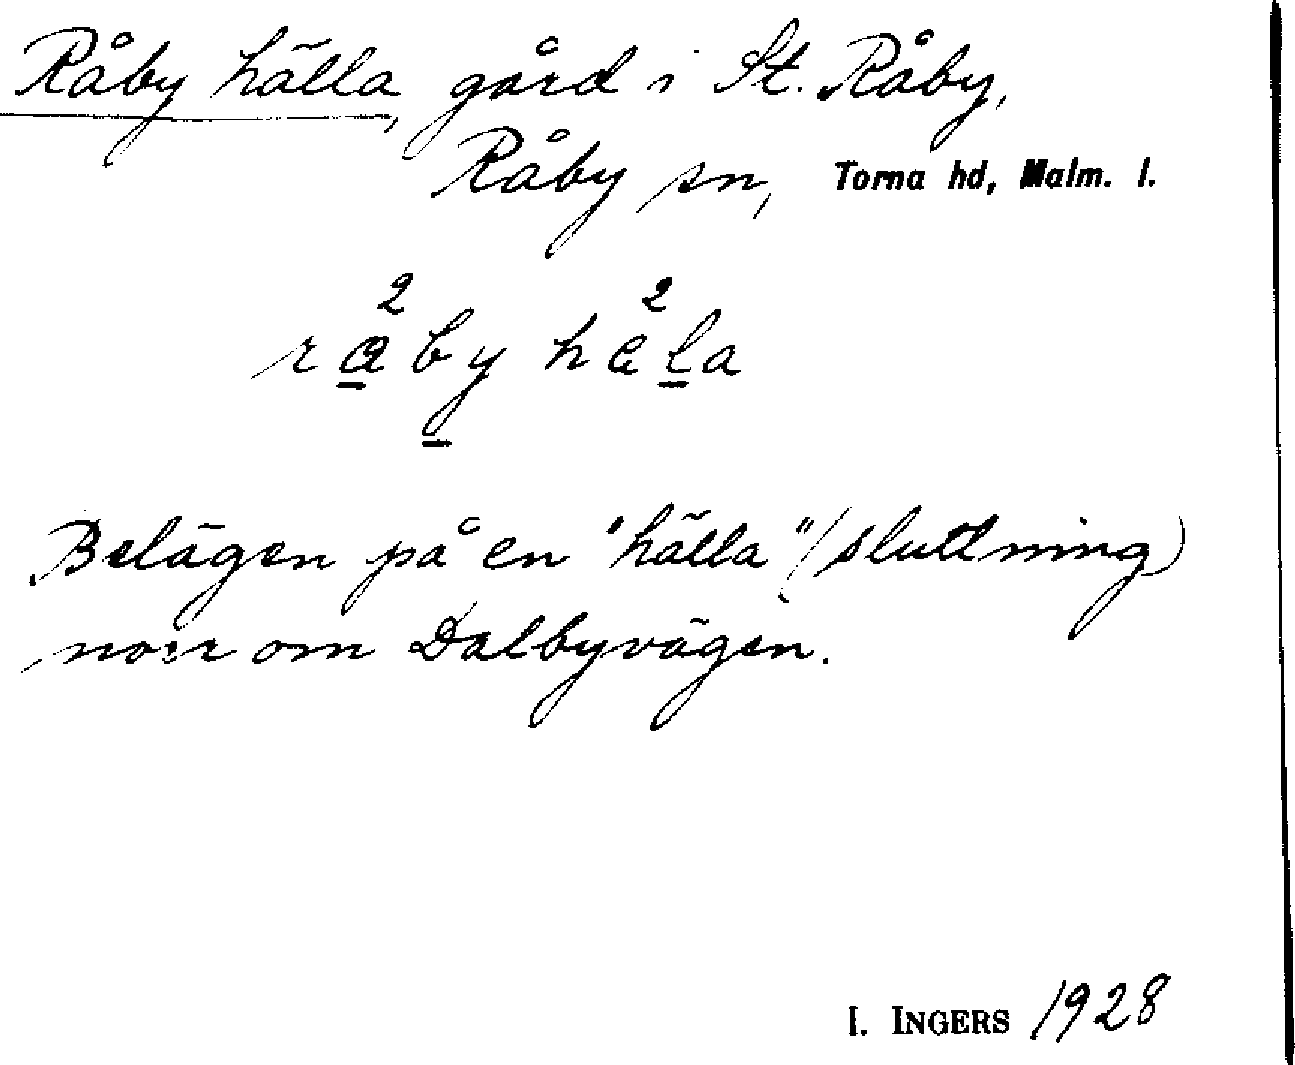 Råby hälla, gård i St. Råby,
Råby sn, Torna hd, Malm. l.
Belägen på en "hälla" (sluttning)
norr om Dalbyvägen.
I. INGERS 1928